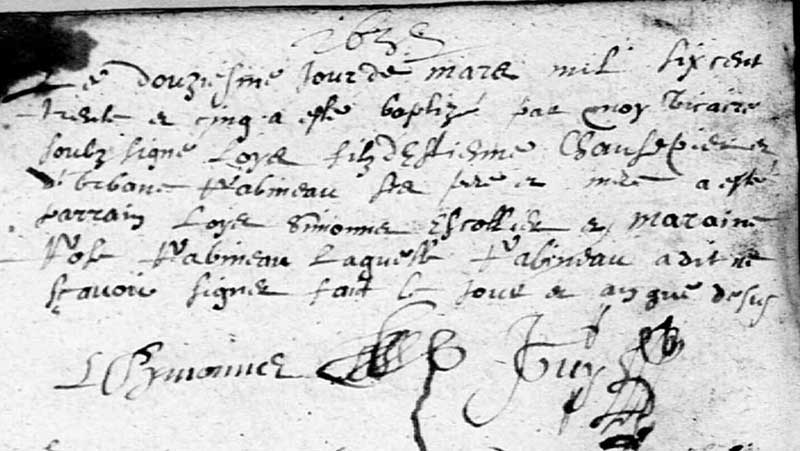 1635
Le douziesme Jour de mars mil six cent
trente et cinq a este baptizé par moy vicaire
soubz signé Loys filz d'Estienne Chausepied et
Rabineau ses pere et mere a esté
parrain Loys Simonnet Escollier et maraine
Rose Rabineau Laquelle Rabineau a dit ne
sçavoir signer fait le Jour et an que desus
L Symonnet